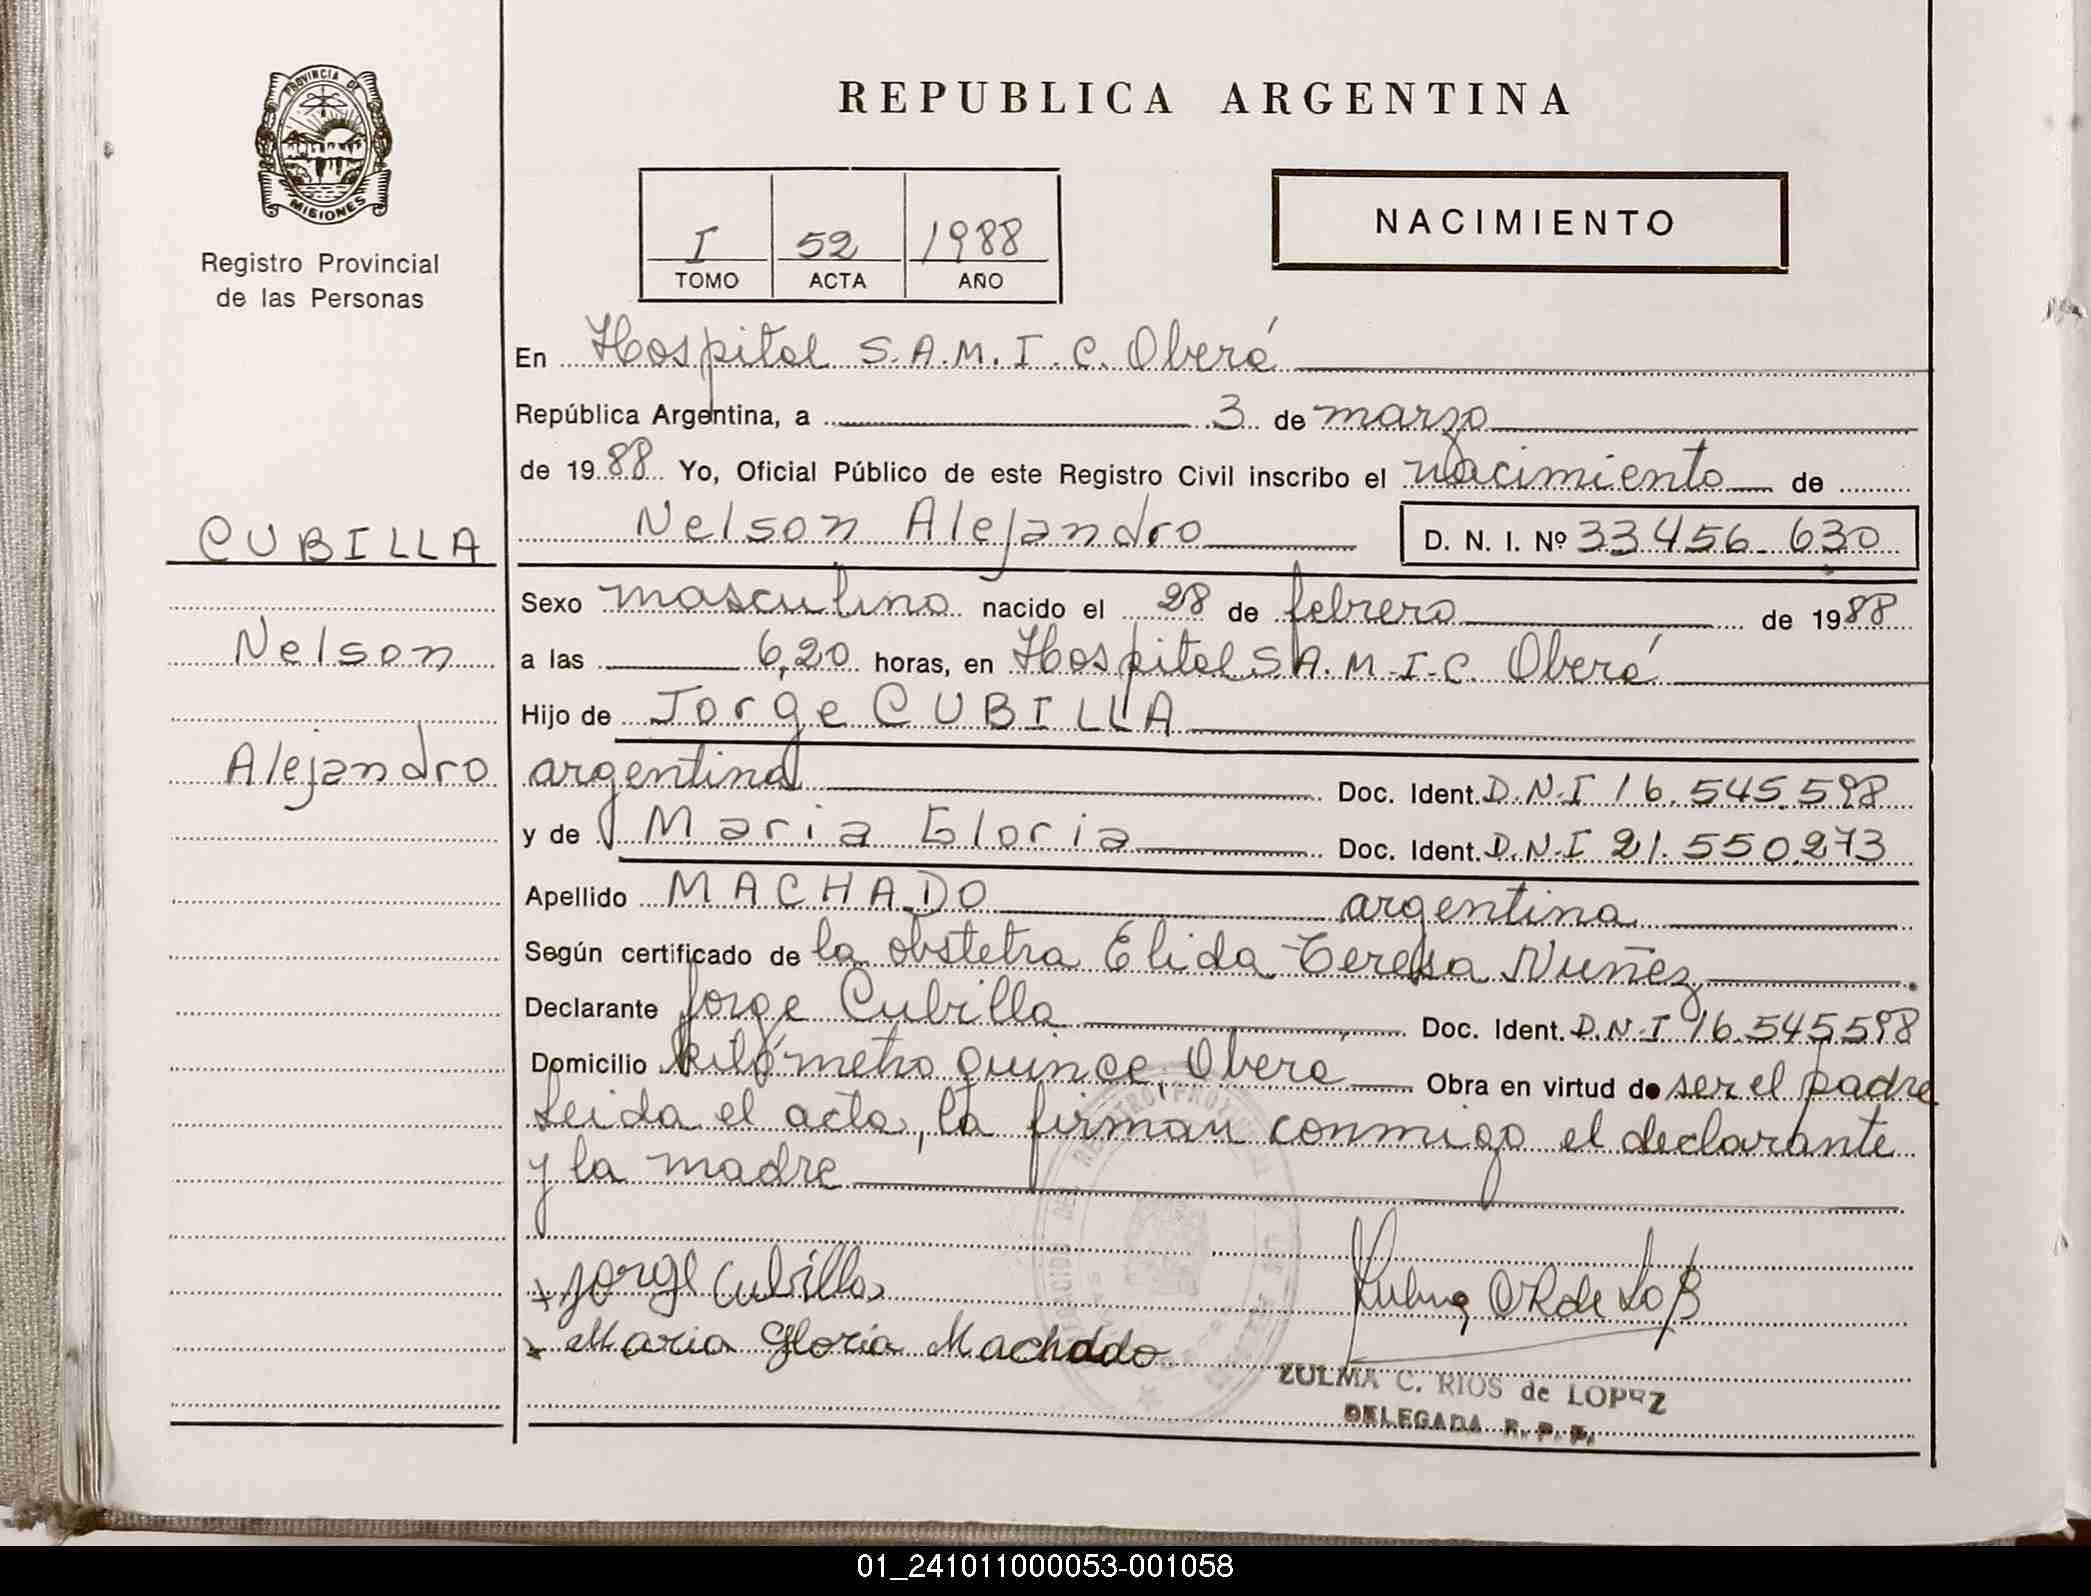 PROVINCIA DE
MISIONES
Registro Provincial
de las Personas
REPUBLICA ARGENTINA
I 52 1988
TOMO ACTA AÑO
NACIMIENTO
En Hospital S.A.M.I.C. Oberá
República Argentina, a 3 de marzo
de 1988 Yo, Oficial Público de este Registro Civil inscribo el nacimiento de
CUBILLA
Nelson Alejandro D. N. I. Nº 33 456.630
Sexo masculino nacido el 28 de febrero de 1988
Nelson
a las 6,20 horas, en Hospital S.A.M.I.C. Oberá
Hijo de Jorge CUBILLA
Alejandro
argentina Doc. Ident. D.N.I 16.545.598
y de Maria Gloria Doc. Ident. D.N.I 21.550.273
Apellido MACHADO argentina
Según certificado de la obstetra Elida Teresa Nuñez
Declarante Jorge Cubilla Doc. Ident. D.N.I 16.545598
Domicilio kilómetro quince, Obera Obra en virtud de ser el padre
Leida el acta, la firman conmigo el declarante
y la madre
x Jorge Cubilla
x Maria Gloria Machado
ZULMA C. RIOS de LOPEZ
DELEGADA R. P. P.
01_241011000053-001058